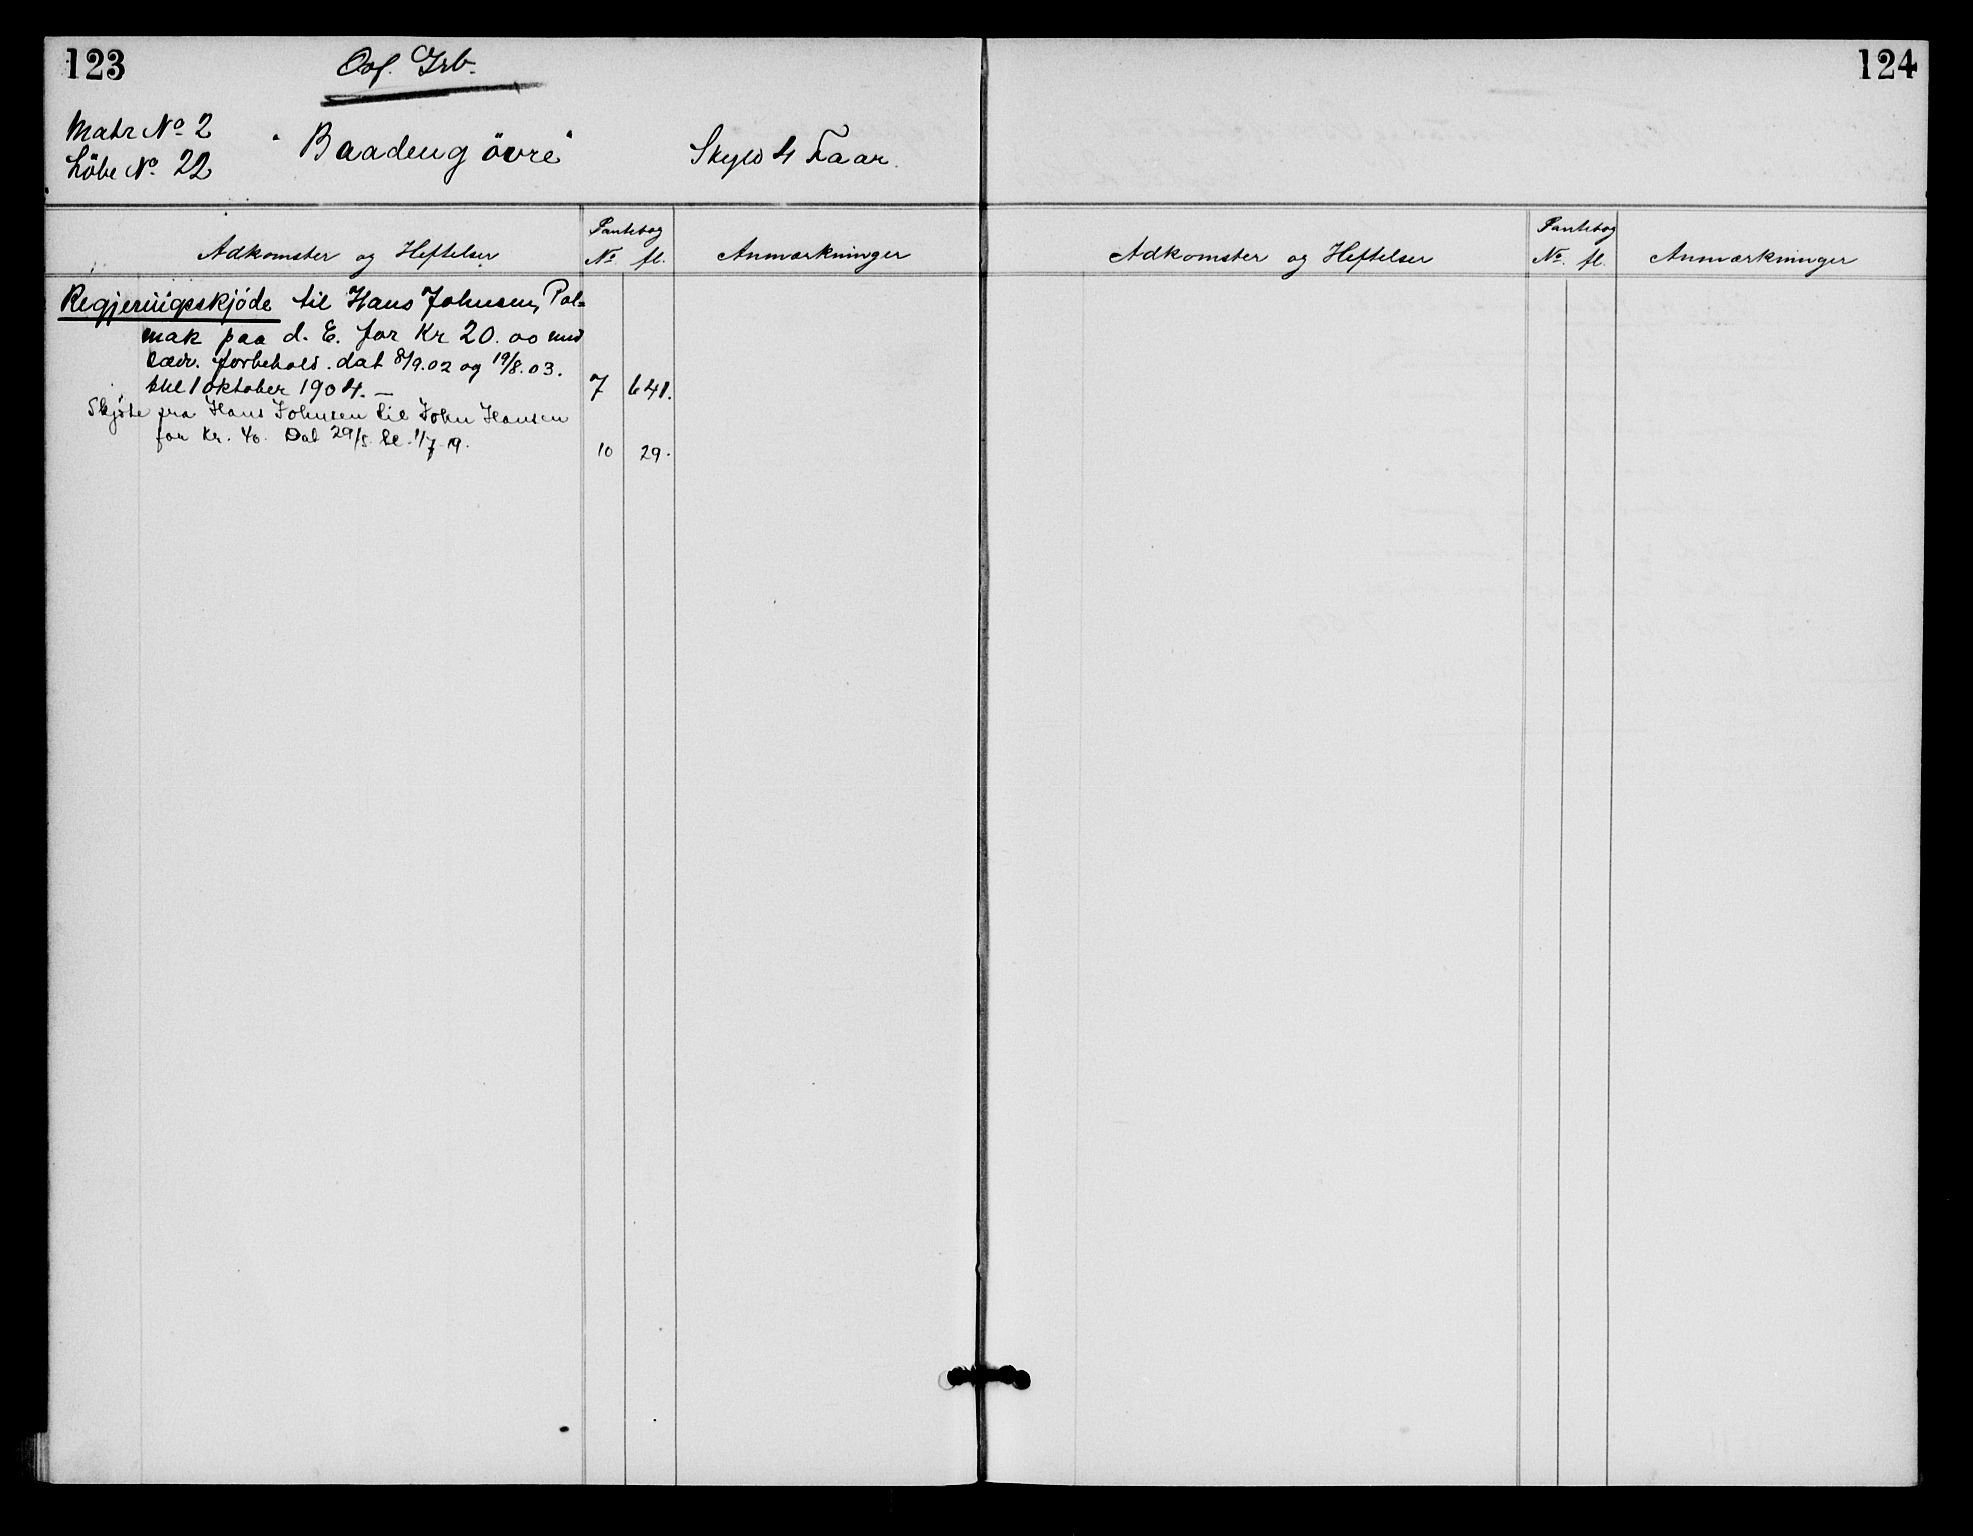 123
Ovf. Grb.
Matr No 2
Löbe No 22
"Baadeng övre"
Skyld 4 Faar.
Adkomster og Heftelser
Pantebog
No. fl.
Anmærkninger
Regjeringsskjöde til Hans Johnsen, Pol-
mak paa d. E. for Kr 20.00 med
sædv. forbehold. dat 8/9.02 og 19/8.03.
thl 1 oktober 1904. — 7 641.
Skjöte fra Hans Johnsen til John Hansen
for Kr. 40. Dat 29/5 tl. 1/7-19. 10 29.
124
Adkomster og Heftelser
Pantebog
No. fl.
Anmærkninger